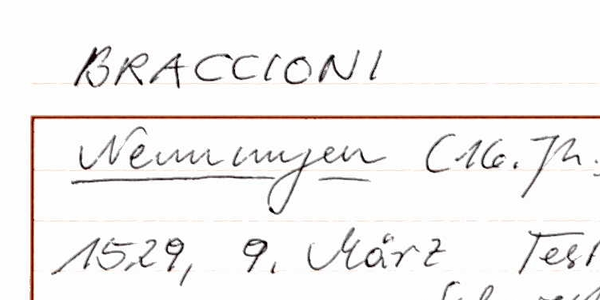 BRACCIONI
Nennungen (16. Jh.
1529, 9. März Test